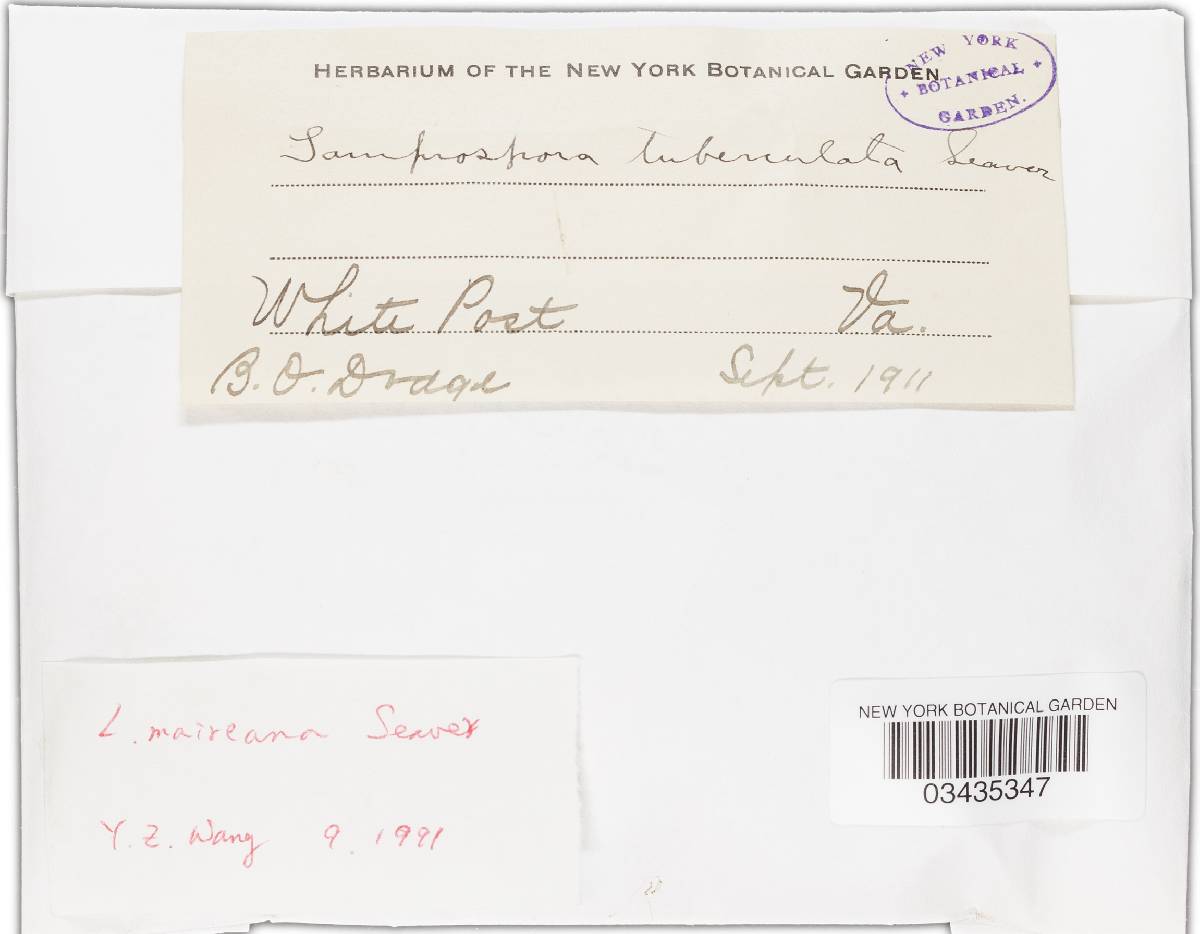 HERBARIUM OF THE NEW YORK BOTANICAL GARDEN
NEW YORK
+ BOTANICAL +
GARDEN.
Lamprospora tuberculata Seaver
White Post Va.
B. O. Dodge Sept. 1911
L. maireana Seaver
Y. Z. Wang 9. 1991
NEW YORK BOTANICAL GARDEN
03435347